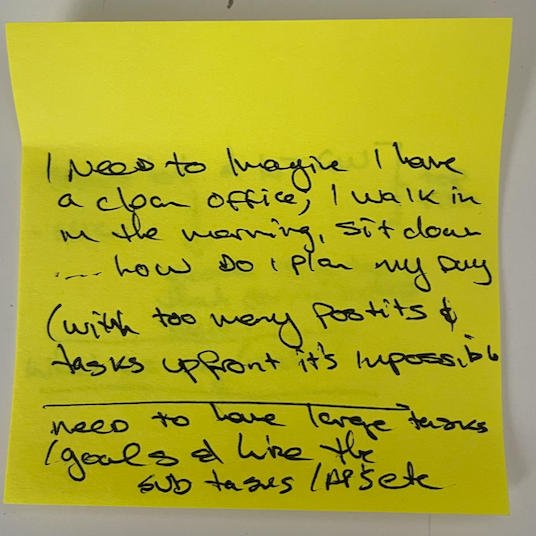 I need to Imagine I have
a clean office, I walk in
in the morning, sit down
.... how Do I plan my Day
(with too many Postits &
tasks upfront it's Impossible
need to have large tasks
/goals & hire the
sub tasks / APs etc